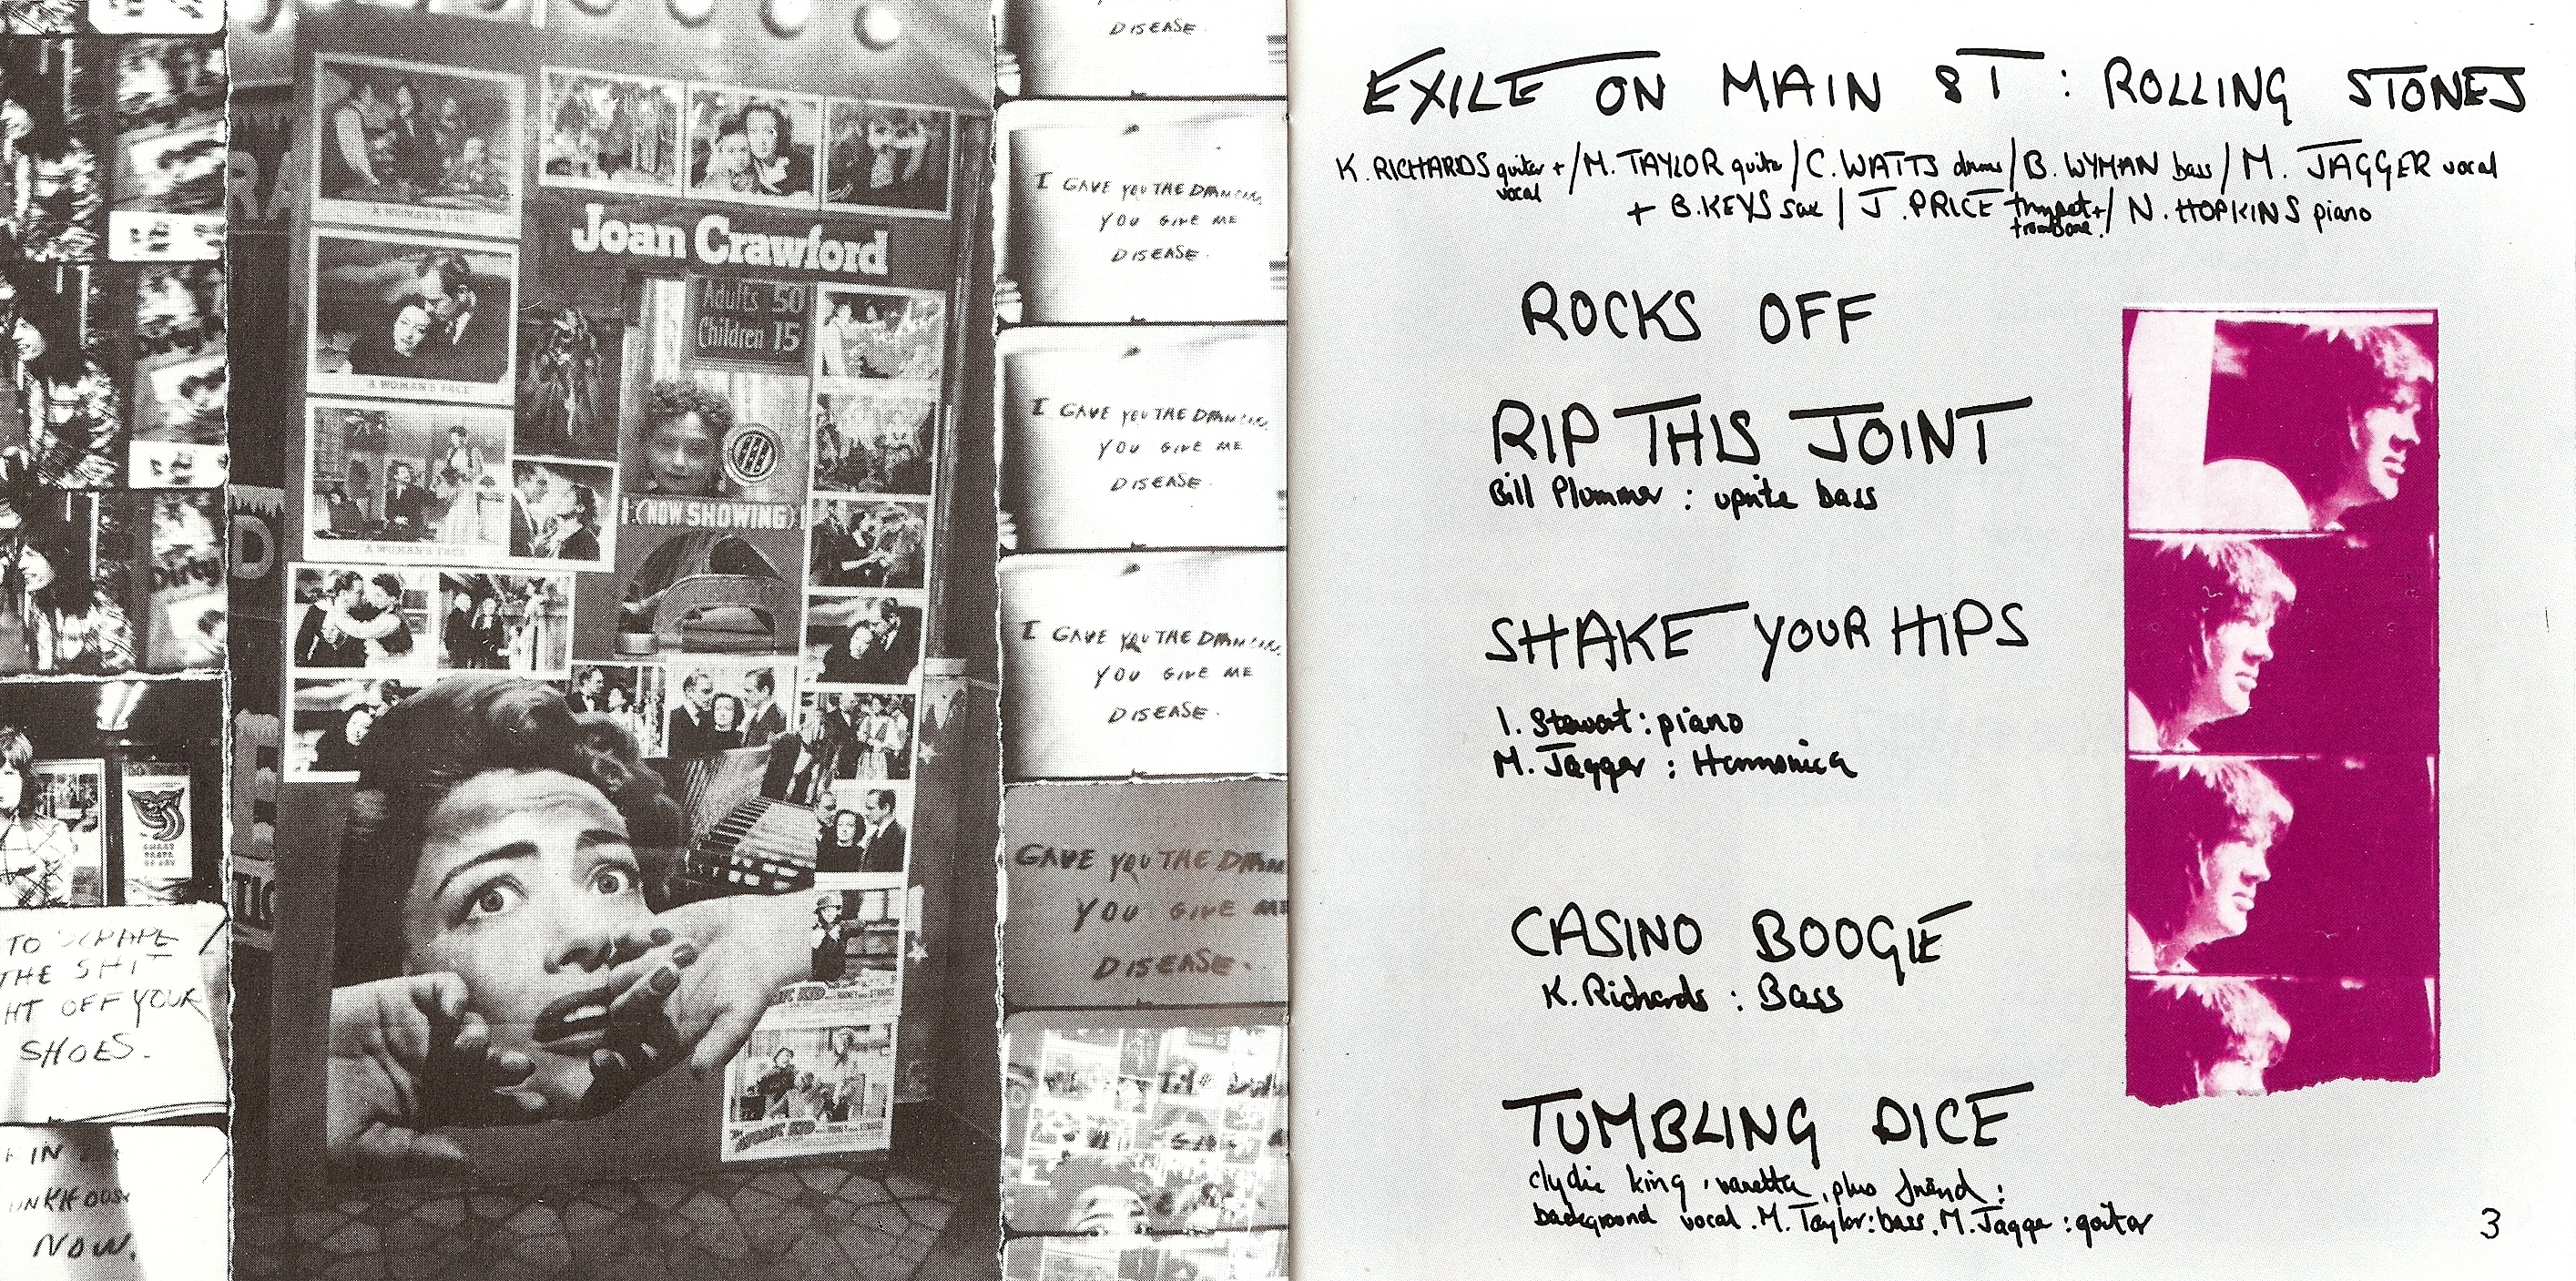 DISEASE.
I GAVE YOU THE
YOU GIVE ME
DISEASE.
I GAVE YOU THE
YOU GIVE ME
DISEASE.
I GAVE YOU THE
YOU GIVE ME
DISEASE.
GAVE YOU THE
YOU GIVE ME
DISEASE.
Joan Crawford
Adults 50
Children 15
(NOW SHOWING)
A WOMAN'S FACE
A WOMAN'S FACE
A WOMAN'S FACE
Dirty
TO SCRAPE
THE SHIT
OFF YOUR
SHOES.
IN
NOW.
EXILE ON MAIN ST : ROLLING STONES
K. RICHARDS guitar + / M. TAYLOR guitar / C. WATTS drums / B. WYMAN bass / M. JAGGER vocal
vocal
+ B. KEYS sax / J. PRICE trumpet + / N. HOPKINS piano
trombone.
ROCKS OFF
RIP THIS JOINT
Bill Plummer : uprite bass
SHAKE YOUR HIPS
I. Stewart : piano
M. Jagger : Harmonica
CASINO BOOGIE
K. Richards : Bass
TUMBLING DICE
clydie king, vanetta, plus friend :
background vocal. M. Taylor: bass. M. Jagger : guitar
3